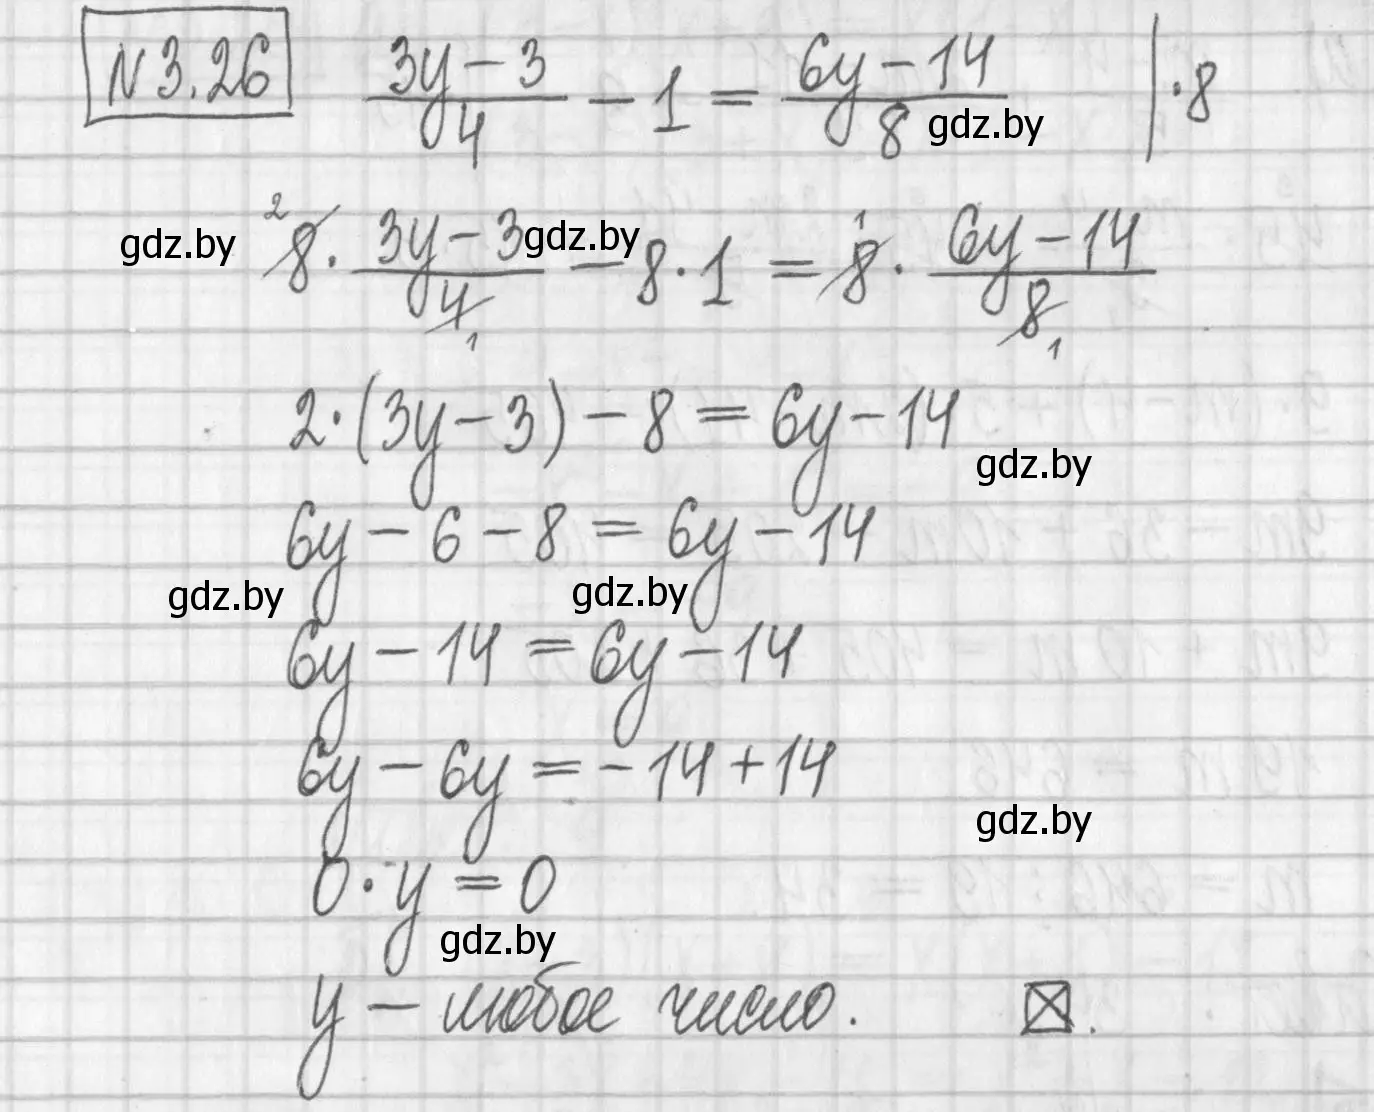 N 3.26 (3y − 3)/4 − 1 = (6y − 14)/8 | · 8
gdz.by
²8 · (3y − 3)/4₁ − 8 · 1 = ¹8 · (6y − 14)/8₁
gdz.by gdz.by
2 · (3y − 3) − 8 = 6y − 14
gdz.by
6y − 6 − 8 = 6y − 14
gdz.by gdz.by
6y − 14 = 6y − 14
6y − 6y = −14 + 14
gdz.by
0 · y = 0
gdz.by
y − любое число. ☒.